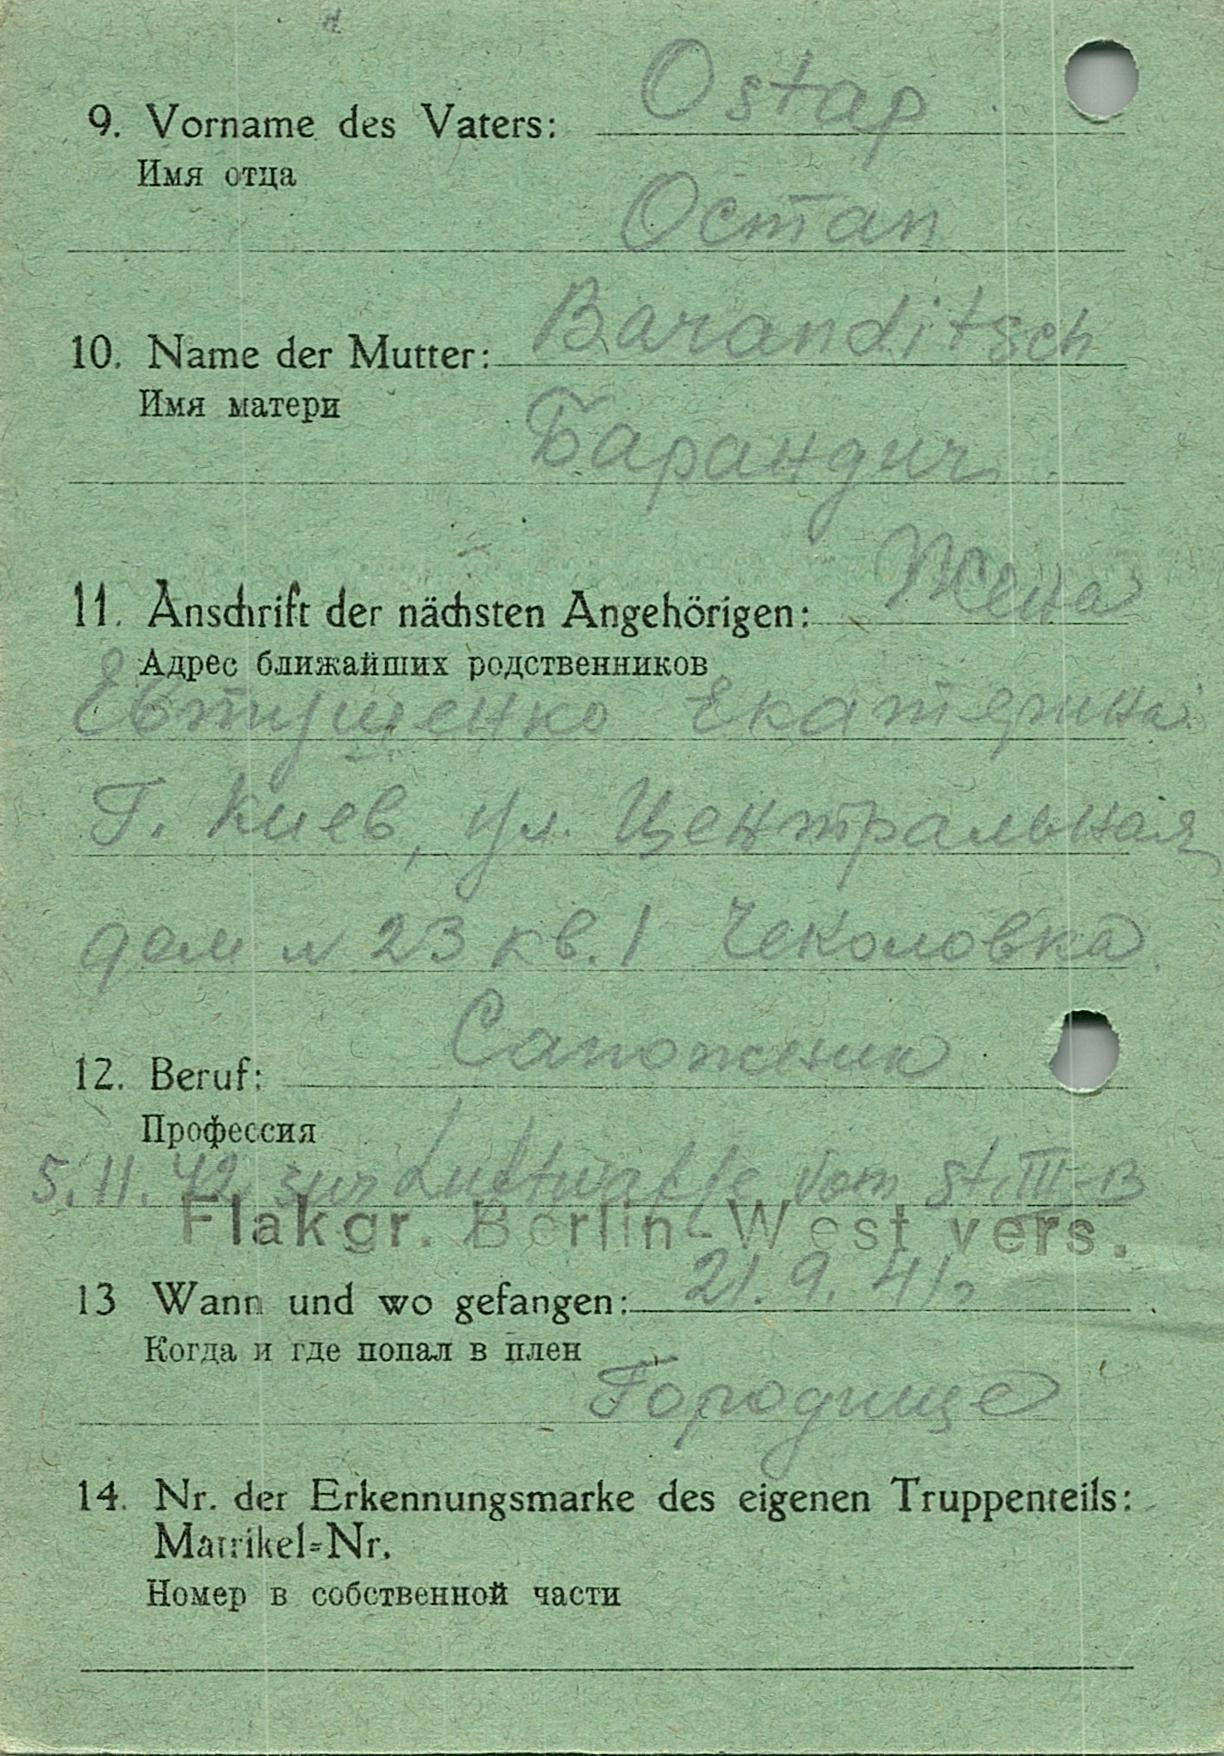 9. Vorname des Vaters: Ostap
Имя отца
Остап
10. Name der Mutter: Baranditsch
Имя матери
Барандич
11. Anschrift der nächsten Angehörigen: Жена
Адрес ближайших родственников
Евтушенко Екатерина
Г. Киев, ул. Центральная
дом № 23 кв. 1 Чеколовка
12. Beruf: Сапожник
Профессия
5.11.42 zur Luftwaffe vom St. III-B
Flakgr. Berlin-West vers.
13 Wann und wo gefangen: 21.9.41
Когда и где попал в плен
Городище
14. Nr. der Erkennungsmarke des eigenen Truppenteils:
Matrikel=Nr.
Номер в собственной части